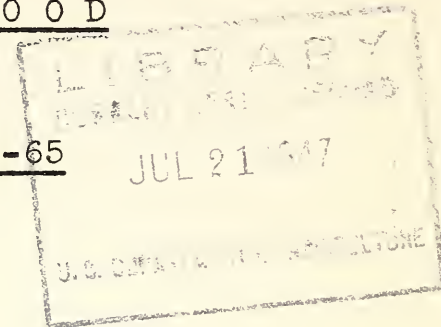 O O D
LIBRARY
-65
JUL 21 1947
U. S. DEPARTMENT OF AGRICULTURE